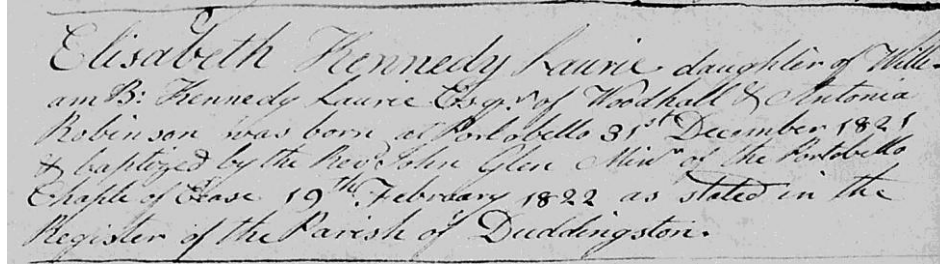 Elisabeth Kennedy Laurie daughter of Willi-
am B: Kennedy Laurie Esqr. of Woodhall & Antonia
Robinson was born at Portobello 31st December 1821
& baptized by the Revd John Glen Minr of the Portobello
Chaple of Ease 19th February 1822 as stated in the
Register of the Parish of Duddingston.